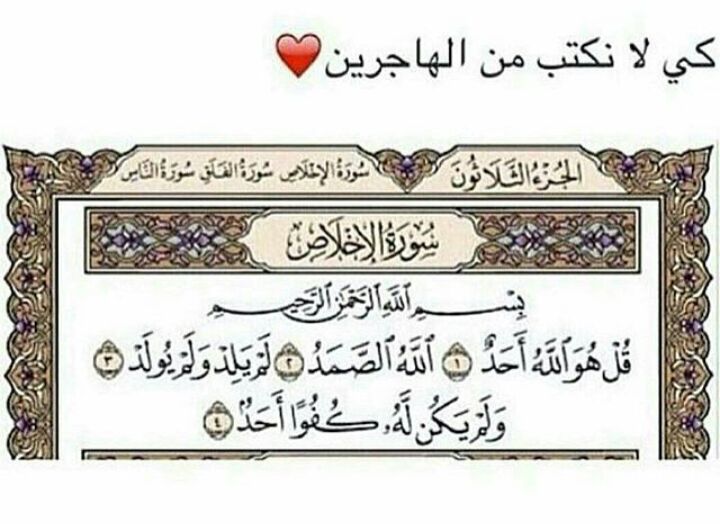 كي لا نكتب من الهاجرين❤️
الجُزءُ الثَّلَاثُونَ
سُورَةُ الإِخْلَاصِ سُورَةُ الفَلَقِ سُورَةُ النَّاسِ
سُورَةُ الإِخْلَاصِ
بِسْمِ ٱللَّهِ ٱلرَّحْمَٰنِ ٱلرَّحِيمِ
قُلْ هُوَ ٱللَّهُ أَحَدٌ ١ ٱللَّهُ ٱلصَّمَدُ ٢ لَمْ يَلِدْ وَلَمْ يُولَدْ ٣
وَلَمْ يَكُن لَّهُۥ كُفُوًا أَحَدٌۢ ٤